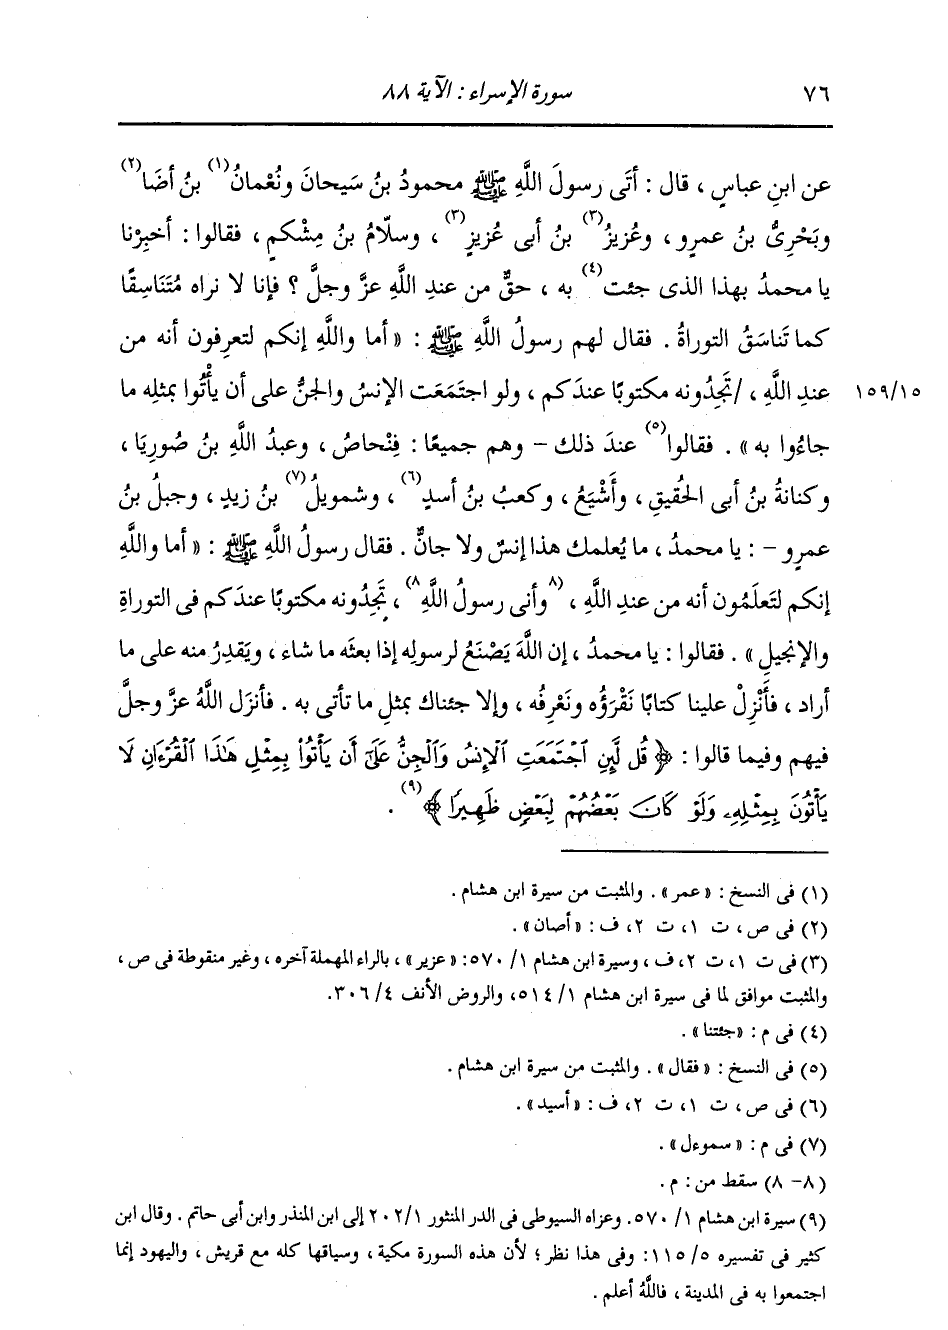 ٧٦ سورة الإسراء : الآية ٨٨
عن ابنِ عباسٍ ، قال : أتَى رسولَ اللَّهِ ﷺ محمودُ بنُ سَيحانَ ونُعْمانُ(١) بنُ أضَا(٢)
وبَحْرِىُّ بنُ عمرٍو ، وعُزيزُ(٣) بنُ أبى عُزيزٍ(٣) ، وسلّامُ بنُ مِشْكمٍ ، فقالوا : أخبِرْنا
يا محمدُ بهذا الذى جئت(٤) به ، حقٌّ من عندِ اللَّهِ عزَّ وجلَّ ؟ فإنا لا نراه مُتَناسِقًا
كما تَناسَقُ التوراةُ . فقال لهم رسولُ اللَّهِ ﷺ : « أما واللَّهِ إنكم لتعرِفون أنه من
١٥٩/١٥ عندِ اللَّهِ ، /تَجِدُونه مكتوبًا عندَكم ، ولو اجتمَعَت الإنسُ والجنُّ على أن يأْتُوا بمثلِه ما
جاءُوا به » . فقالوا(٥) عندَ ذلك – وهم جميعًا : فِنْحاصُ ، وعبدُ اللَّهِ بنُ صُورِيَا ،
وكنانةُ بنُ أبى الحُقيقِ ، وأَشْيَعُ ، وكعبُ بنُ أسدٍ(٦) ، وشمويلُ(٧) بنُ زيدٍ ، وجبلُ بنُ
عمرٍو – : يا محمدُ ، ما يُعلمك هذا إنسٌ ولا جانٌّ . فقال رسولُ اللَّهِ ﷺ : « أما واللَّهِ
إنكم لتَعلَمُون أنه من عندِ اللَّهِ ، (٨وأنى رسولُ اللَّهِ٨) ، تَجِدُونه مكتوبًا عندَكم فى التوراةِ
والإنجيلِ » . فقالوا : يا محمدُ ، إن اللَّهَ يَصْنَعُ لرسولِه إذا بعثَه ما شاء ، ويَقدِرُ منه على ما
أراد ، فأَنْزِلْ علينا كتابًا نَقْرَؤُه ونَعْرِفُه ، وإلا جئناك بمثلِ ما تأتى به . فأنزَل اللَّهُ عزَّ وجلَّ
فيهم وفيما قالوا : ﴿ قُل لَّئِنِ ٱجْتَمَعَتِ ٱلْإِنسُ وَٱلْجِنُّ عَلَىٰٓ أَن يَأْتُوا۟ بِمِثْلِ هَٰذَا ٱلْقُرْءَانِ لَا
يَأْتُونَ بِمِثْلِهِۦ وَلَوْ كَانَ بَعْضُهُمْ لِبَعْضٍ ظَهِيرًا ﴾(٩) .
(١) فى النسخ : « عمر » . والمثبت من سيرة ابن هشام .
(٢) فى ص ، ت ١، ت ٢، ف : « أصان » .
(٣) فى ت ١، ت ٢، ف ، وسيرة ابن هشام ١/ ٥٧٠: « عزير » ، بالراء المهملة آخره ، وغير منقوطة فى ص ،
والمثبت موافق لما فى سيرة ابن هشام ١/ ٥١٤، والروض الأنف ٤/ ٣٠٦.
(٤) فى م : « جئتنا » .
(٥) فى النسخ : « فقال » . والمثبت من سيرة ابن هشام .
(٦) فى ص ، ت ١، ت ٢، ف : « أسيد » .
(٧) فى م : « سموءل » .
(٨ – ٨) سقط من : م .
(٩) سيرة ابن هشام ١/ ٥٧٠. وعزاه السيوطى فى الدر المنثور ١/ ٢٠٢ إلى ابن المنذر وابن أبى حاتم . وقال ابن
كثير فى تفسيره ٥/ ١١٥: وفى هذا نظر ؛ لأن هذه السورة مكية ، وسياقها كله مع قريش ، واليهود إنما
اجتمعوا به فى المدينة ، فاللَّهُ أعلم .